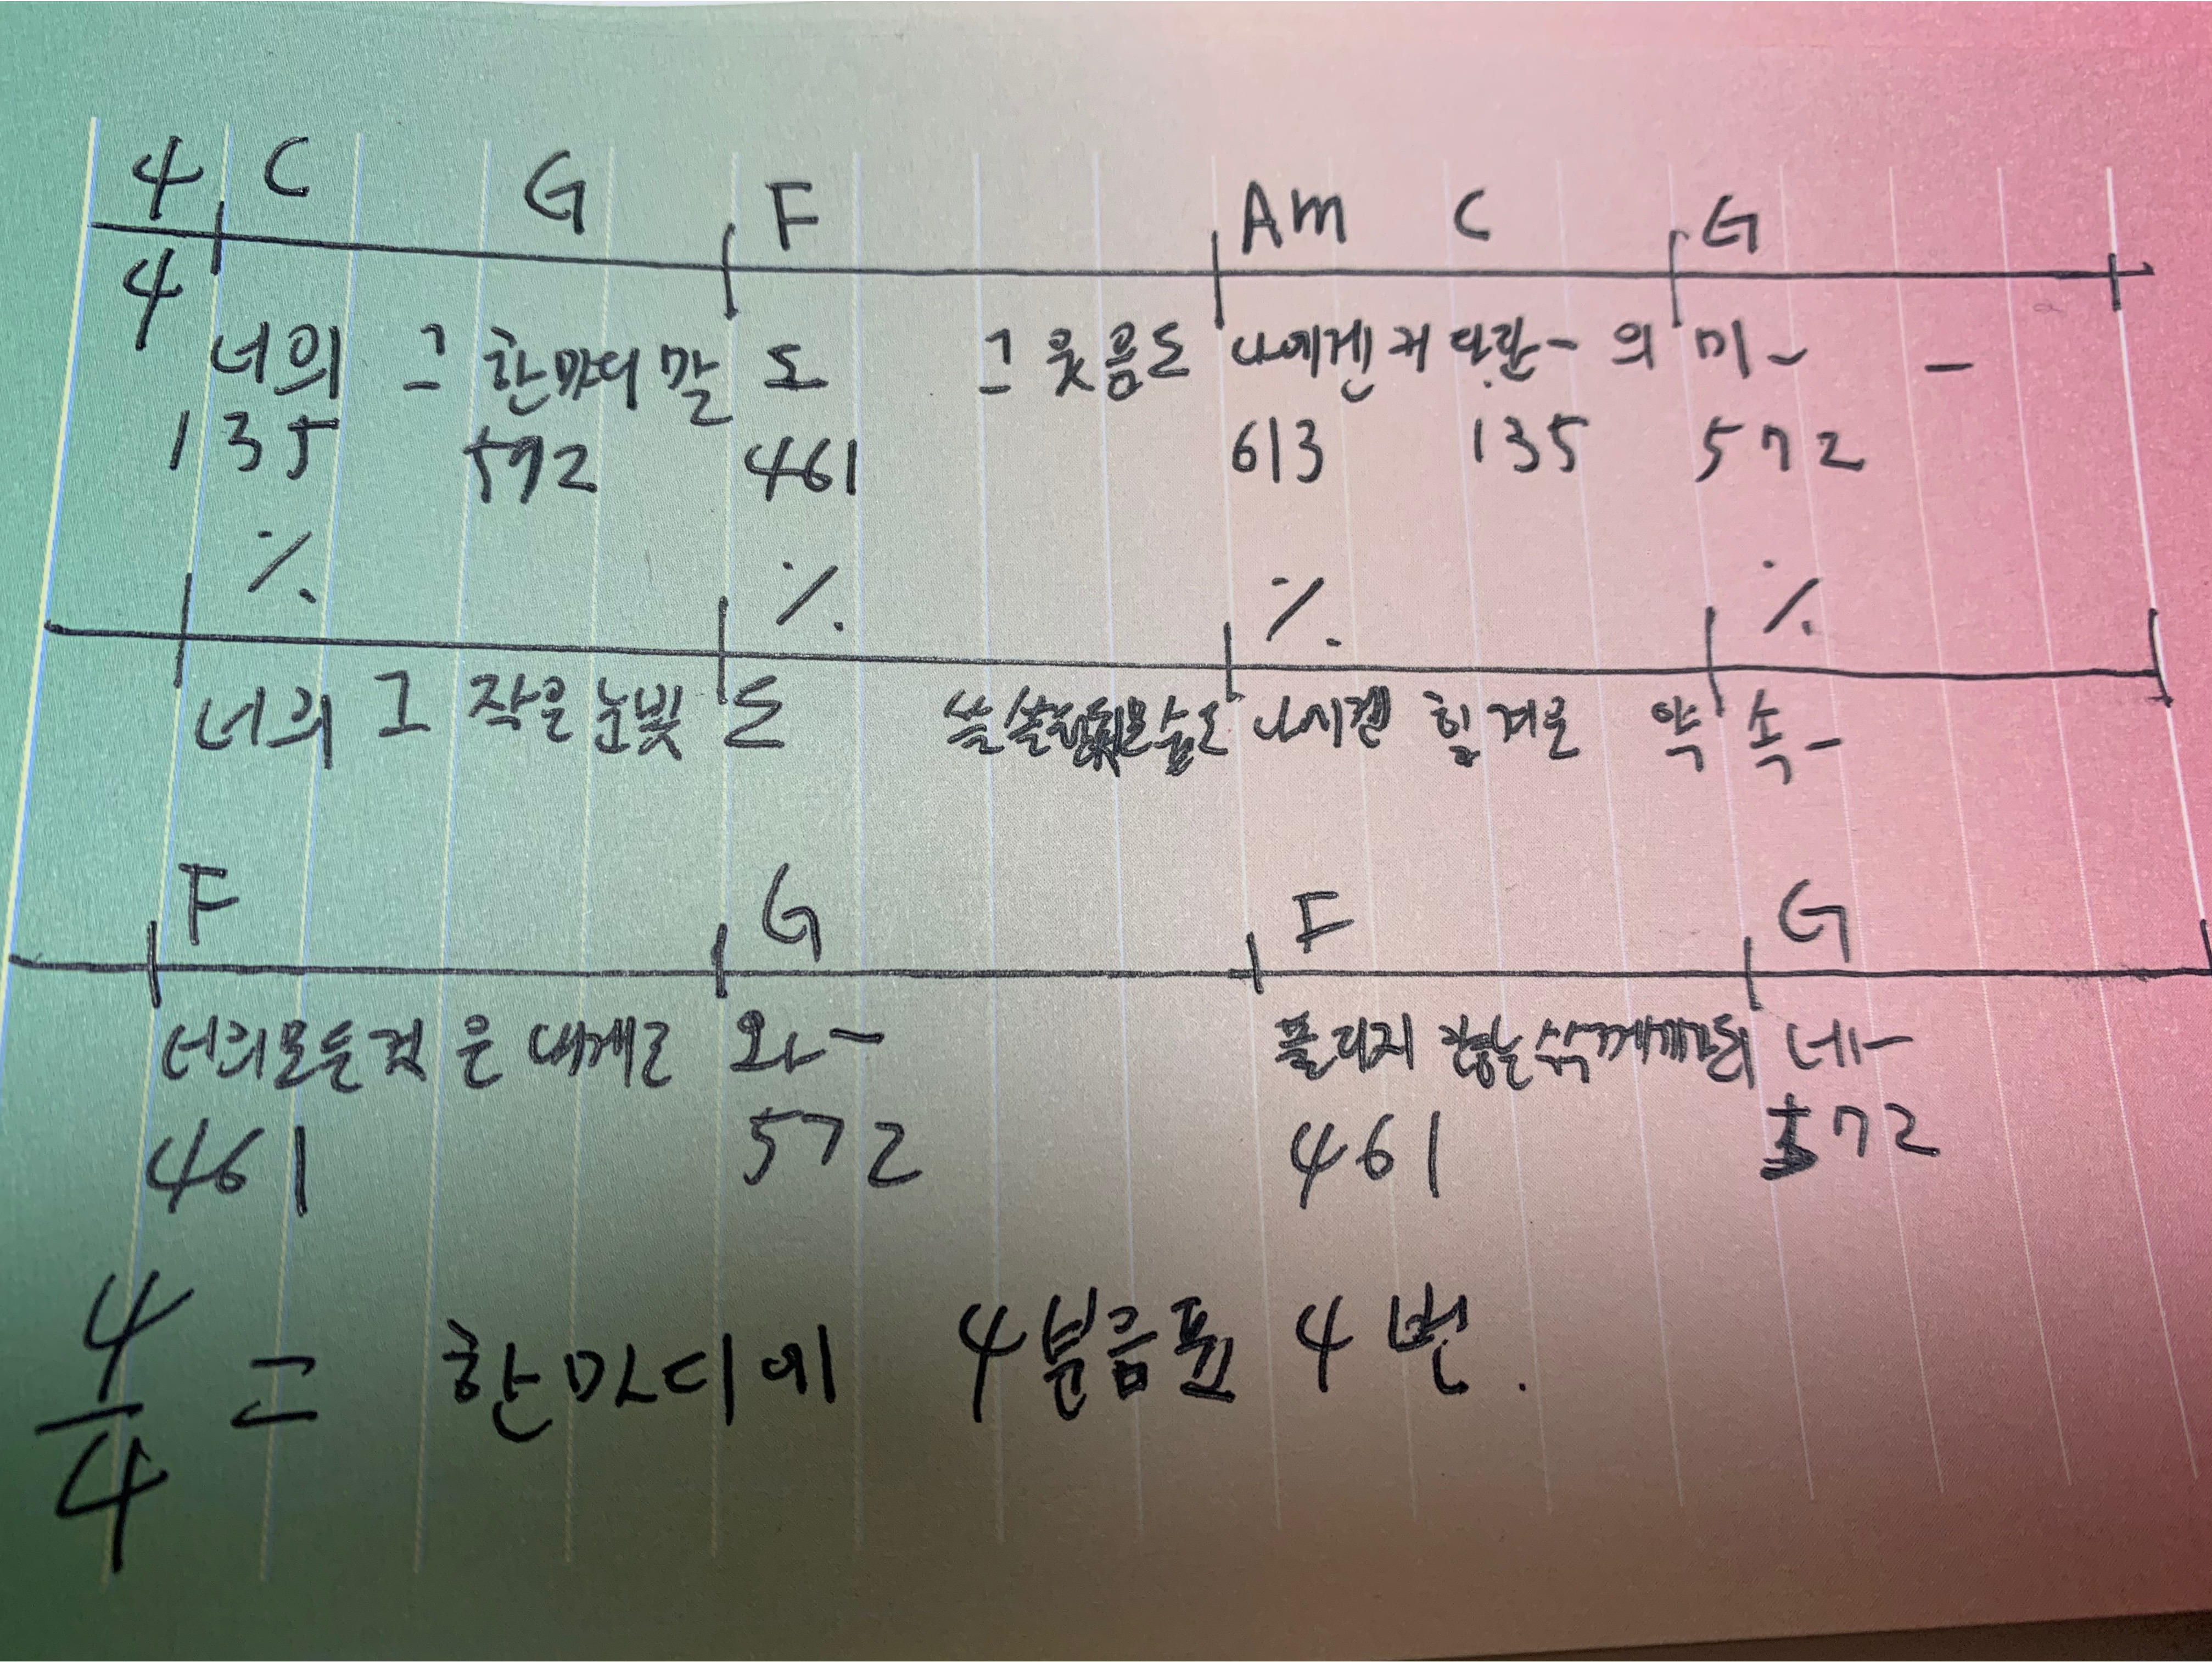 4/4 C G F Am C G
너의 그 한마디 말 도 그 웃음도 나에겐 커다란- 의 미- -
135 572 461 613 135 572
٪ ٪ ٪ ٪
너의 그 작은 눈빛 도 쓸쓸한 뒷모습도 나에겐 힘겨운 약 속-
F G F G
너의모든것 은 내게로 와-
461 572 461 572
4/4 = 한마디에 4분음표 4번.